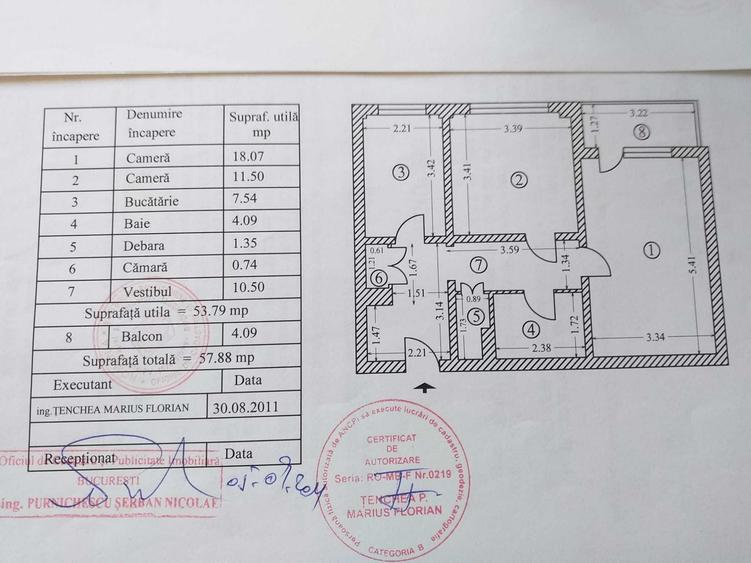 Nr. încapere Denumire încapere Supraf. utilă mp
1 Cameră 18.07
2 Cameră 11.50
3 Bucătărie 7.54
4 Baie 4.09
5 Debara 1.35
6 Cămară 0.74
7 Vestibul 10.50
Suprafață utila = 53.79 mp
8 Balcon 4.09
Suprafață totală = 57.88 mp
Executant Data
ing.TENCHEA MARIUS FLORIAN 30.08.2011
Recepționat Data
Oficiul de Publicitate Imobiliară
BUCUREȘTI
ing. PURNICHESCU ȘERBAN NICOLAE
2.21
3.42
3
3.39
3.41
2
3.22
1.27
8
1
5.41
3.34
0.61
1.21
6
1.67
1.51
3.59
7
1.34
3.14
0.89
5
1.73
4
1.72
2.38
1.47
2.21
Persoană fizică autorizată de ANCPI să execute lucrări de cadastru, geodezie, cartografie
CERTIFICAT
DE
AUTORIZARE
Seria: RO-MB-F Nr.0219
TENCHEA P.
MARIUS FLORIAN
CATEGORIA B